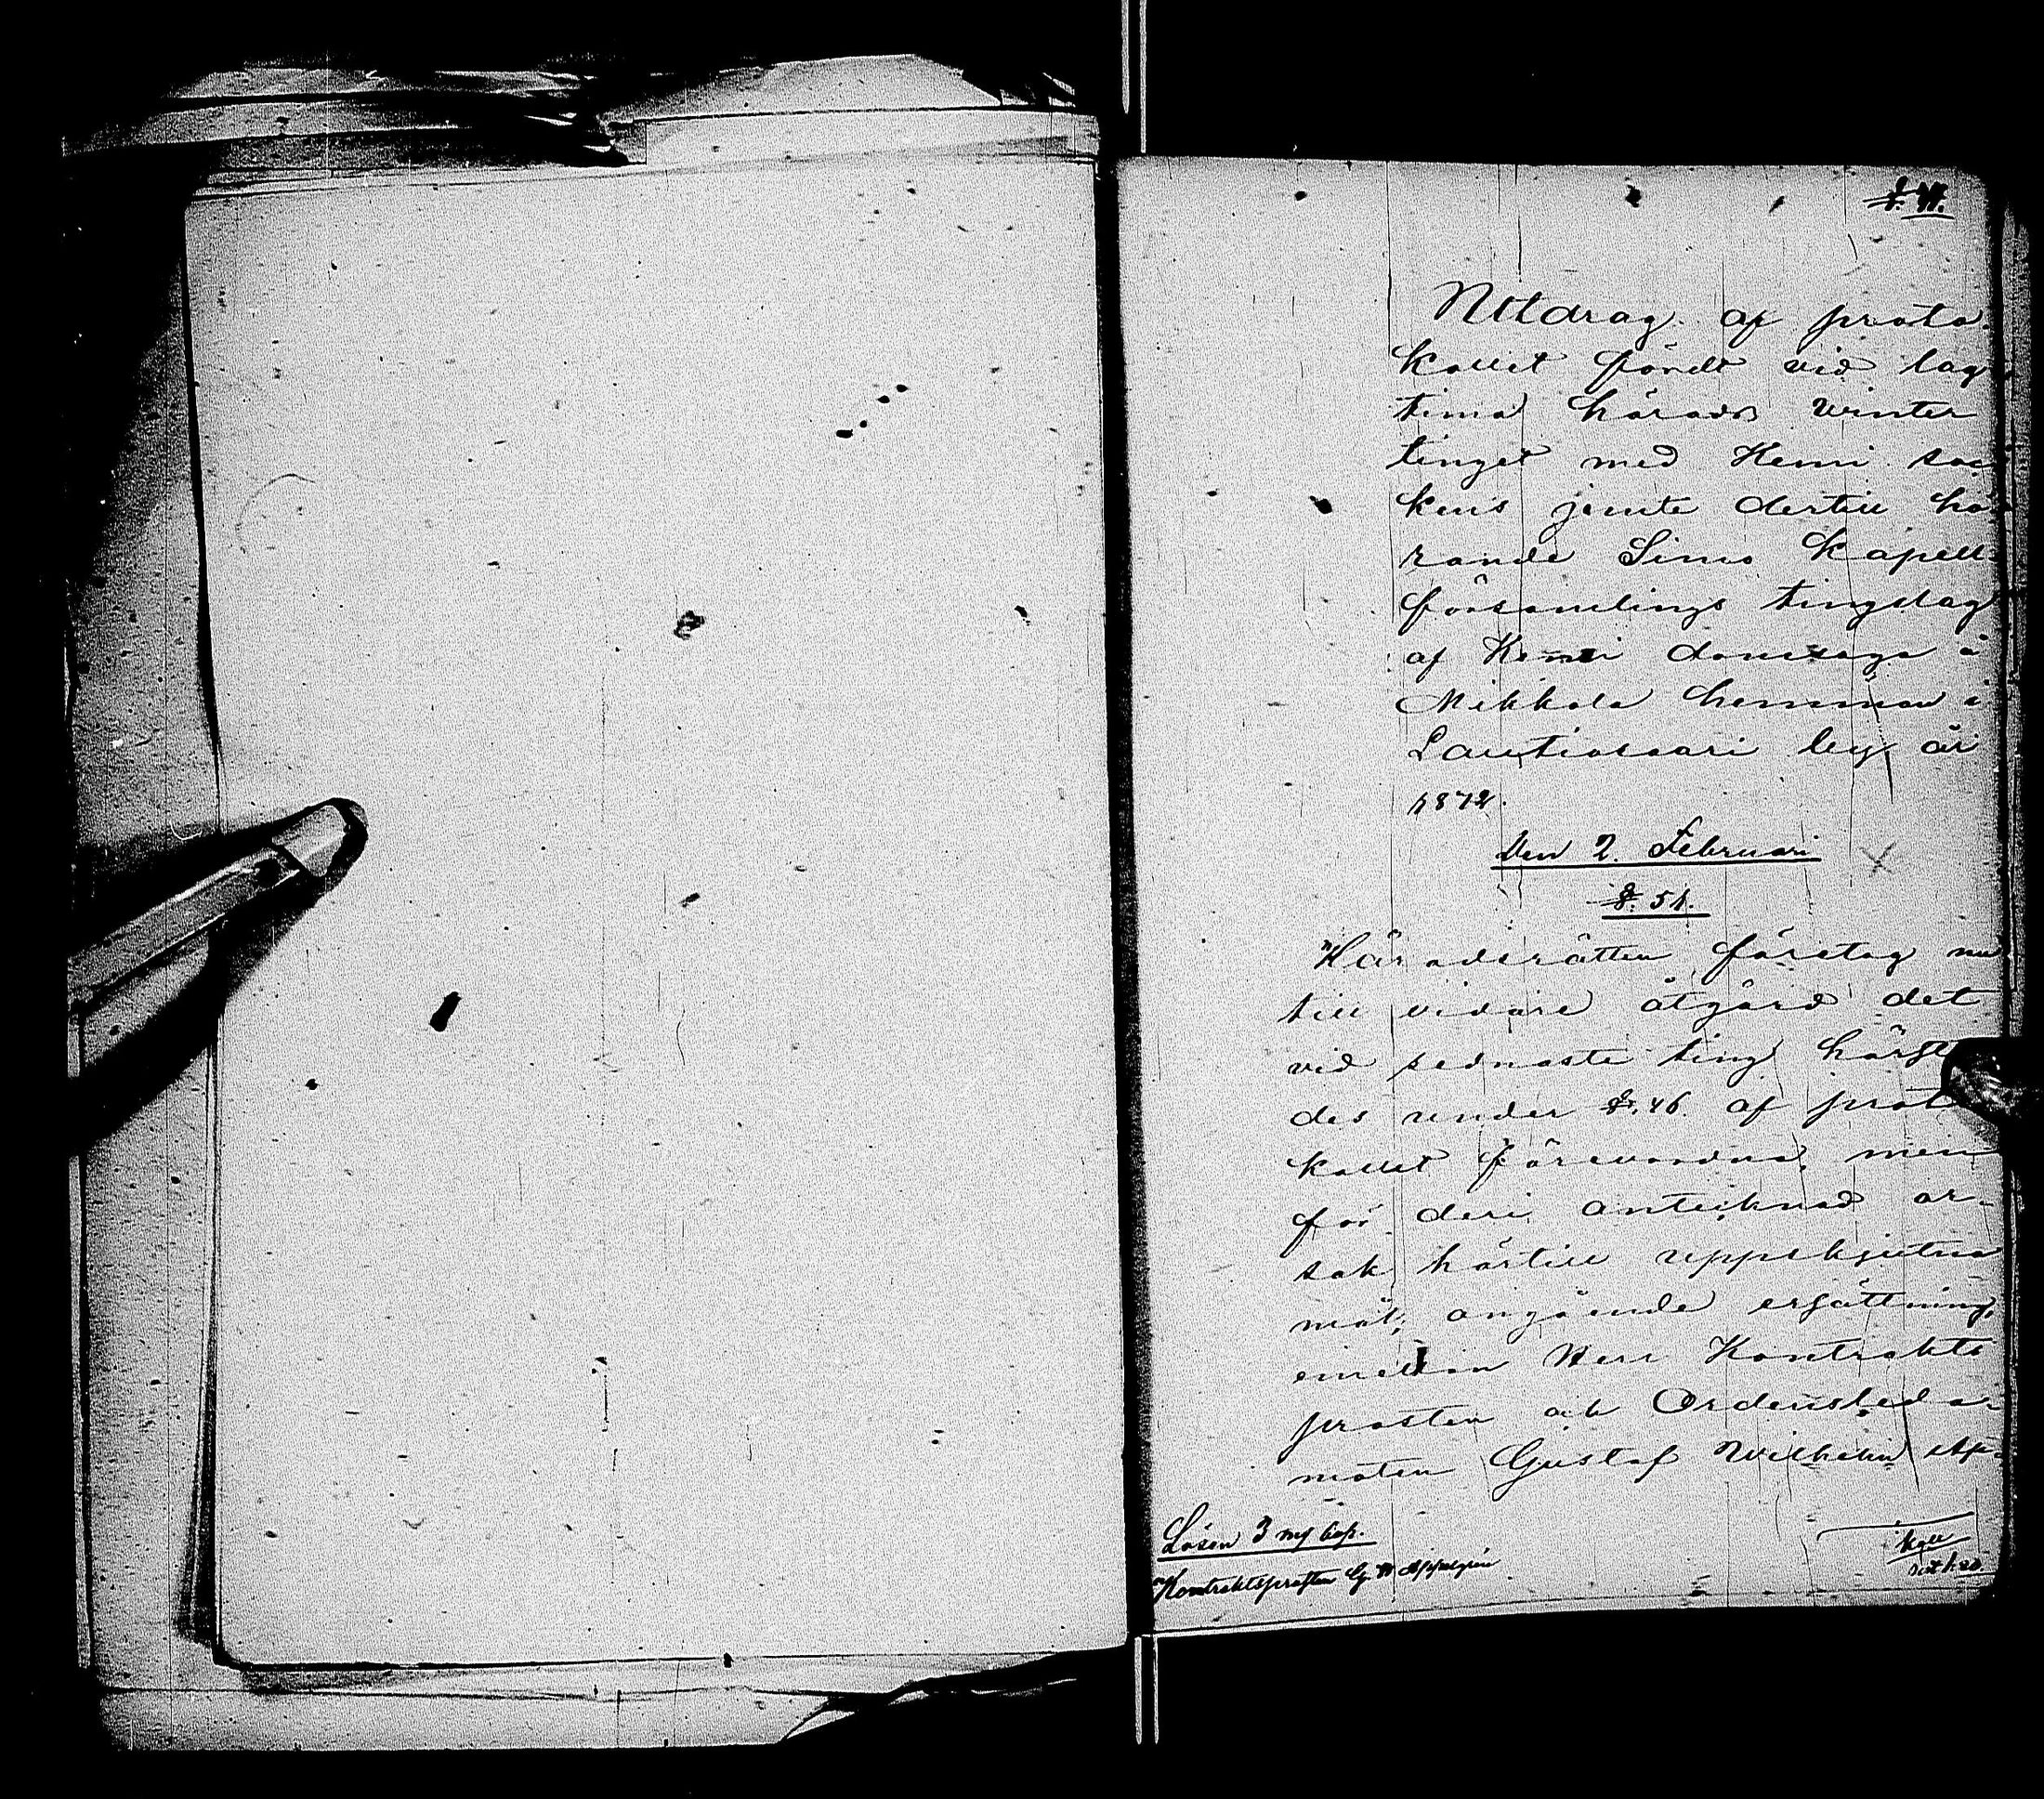 Utdrag af proto-
kollet fördt vid lag
tima härads vinter
tinget med Kemi soc
kens jemte dertill hö
rande Simo kapell
församlings tingslag
af Kemi domsaga å
Mikkola hemman i
Lautiosaari by år
1872.
Den 2. Februari
§. 51.
Häradsrätten företog nu
till vidare åtgärd det
vid sednaste ting härst
des under §. 46. af prot
kollet förevordna, men
för deri antecknad or-
sak härtill uppskjutna
mål, angående ersättning,
emellan Herr Kontrakts
prosten och Ordensledar
moten Gustaf Wilhelm Ap-
Lösen 3 mk 60 p.
Kontraktsprosten G. W. Appelgren